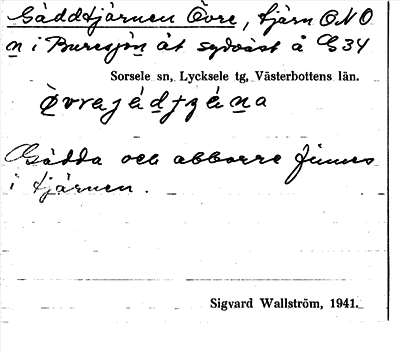 Gäddtjärnen Övre, tjärn ONO
n i Buresjön åt sydväst å G34
Sorsele sn, Lycksele tg, Västerbottens län.
Gädda och abborre finnes
i tjärnen.
Sigvard Wallström, 1941.